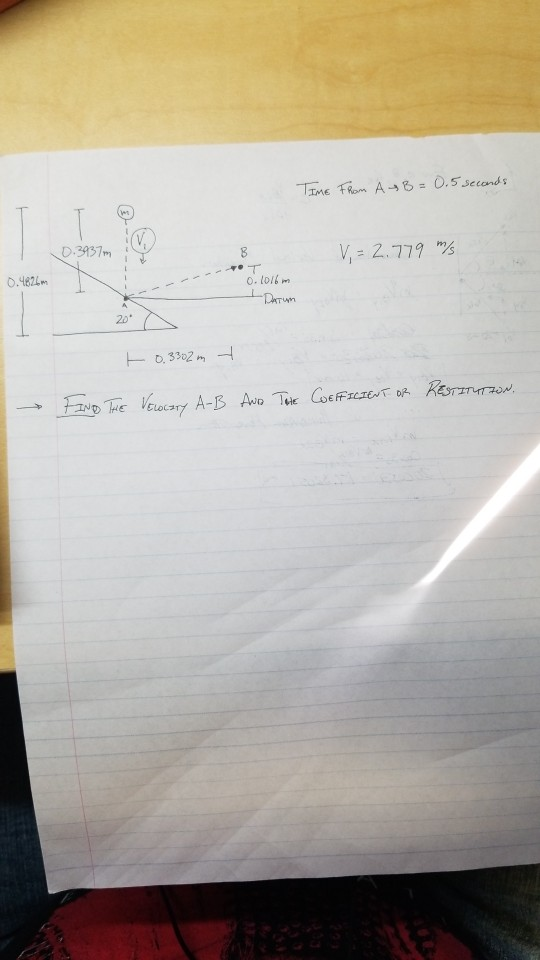 TIME FROM A→B = 0.5 seconds
m
V₁
0.3937m
V₁ = 2.779 m/s
B
0.4826m
0.1016m
A
DATUM
20°
0.3302 m
→ FIND THE VELOCITY A-B AND THE COEFFICIENT OR RESTITUTION.